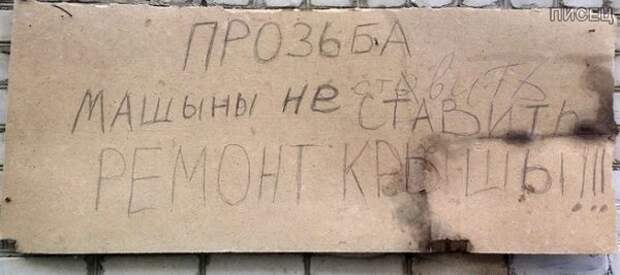 ПИСЕЦ
ПРОЗЬБА
МАШЫНЫ не ставить
СТАВИТЬ
РЕМОНТ КРЫШЫ!!!